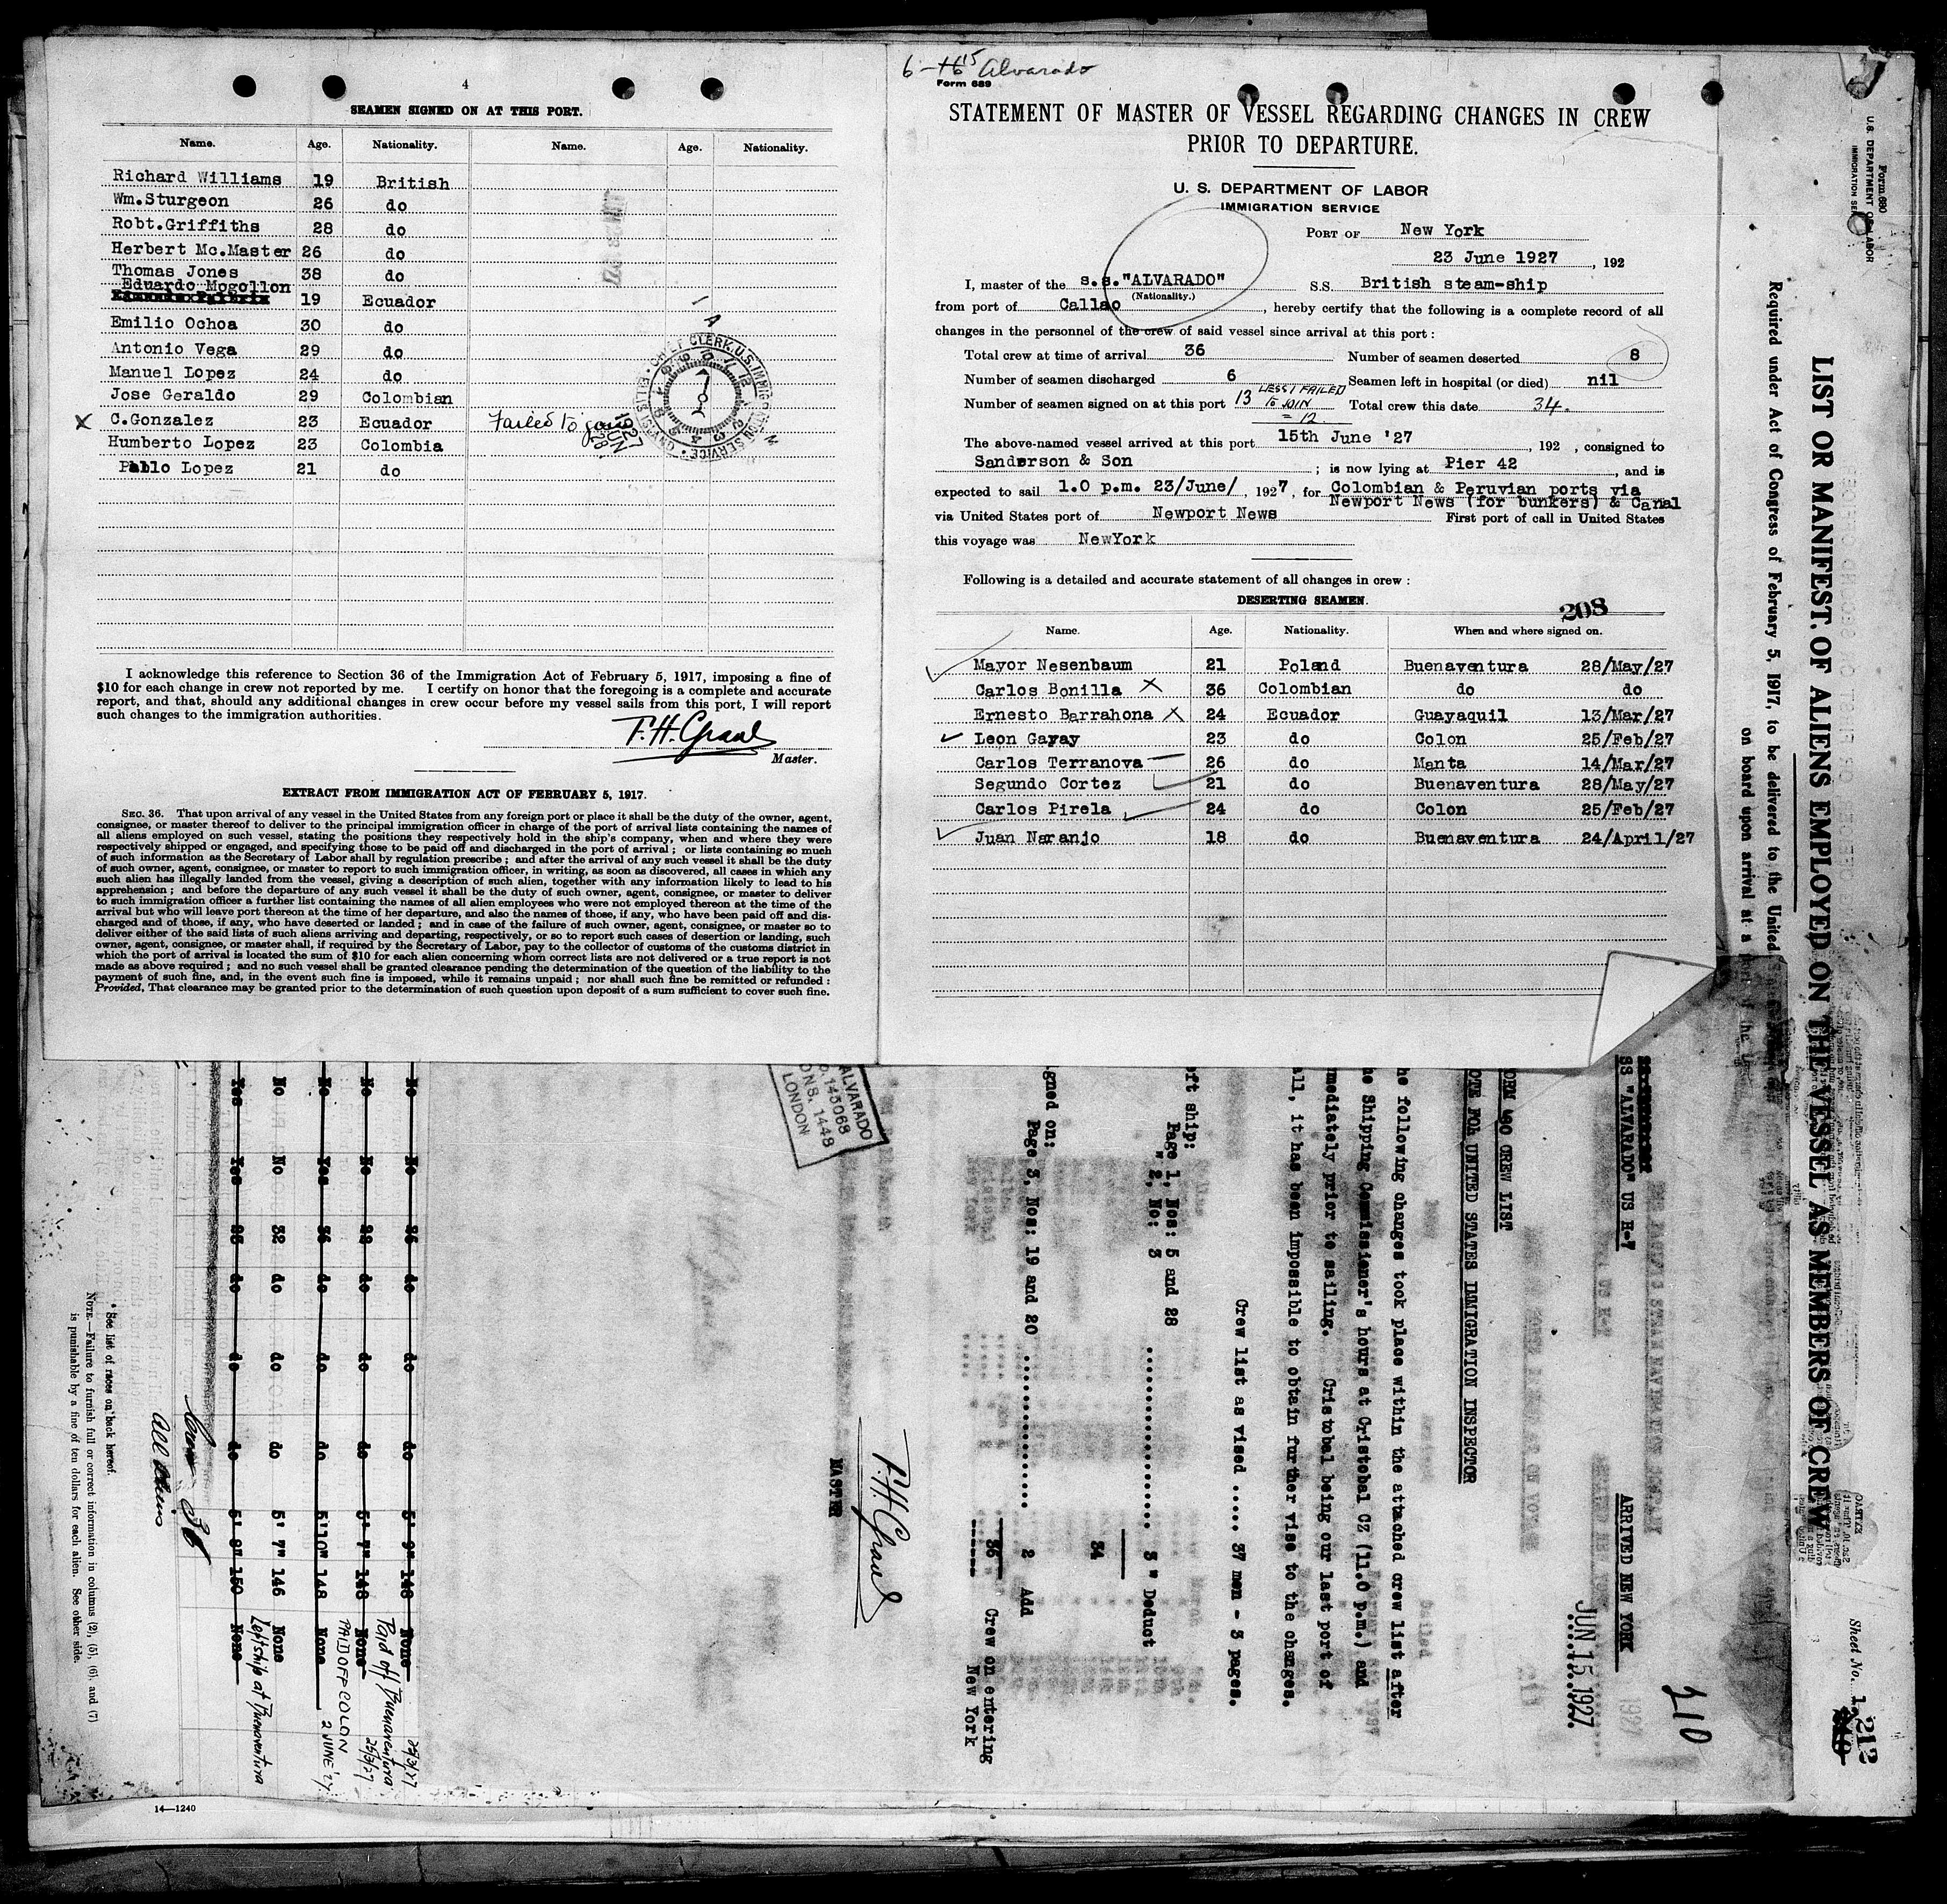 4
SEAMEN SIGNED ON AT THIS PORT.
Name. Age. Nationality. Name. Age. Nationality.
Richard Williams 19 British
Wm.Sturgeon 26 do
Robt.Griffiths 28 do
Herbert Mc.Master 26 do
Thomas Jones 38 do
Eduardo Mogollon
19 Ecuador
Emilio Ochoa 30 do
Antonio Vega 29 do
Manuel Lopez 24 do
Jose Geraldo 29 Colombian
X C.Gonzalez 23 Ecuador Failed to join
Humberto Lopez 23 Colombia
Pablo Lopez 21 do
I acknowledge this reference to Section 36 of the Immigration Act of February 5, 1917, imposing a fine of
$10 for each change in crew not reported by me. I certify on honor that the foregoing is a complete and accurate
report, and that, should any additional changes in crew occur before my vessel sails from this port, I will report
such changes to the immigration authorities.
Master.
EXTRACT FROM IMMIGRATION ACT OF FEBRUARY 5, 1917.
SEC. 36. That upon arrival of any vessel in the United States from any foreign port or place it shall be the duty of the owner, agent,
consignee, or master thereof to deliver to the principal immigration officer in charge of the port of arrival lists containing the names of
all aliens employed on such vessel, stating the positions they respectively hold in the ship's company, when and where they were
respectively shipped or engaged, and specifying those to be paid off and discharged in the port of arrival; or lists containing so much
of such information as the Secretary of Labor shall by regulation prescribe; and after the arrival of any such vessel it shall be the duty
of such owner, agent, consignee, or master to report to such immigration officer, in writing, as soon as discovered, all cases in which any
such alien has illegally landed from the vessel, giving a description of such alien, together with any information likely to lead to his
apprehension; and before the departure of any such vessel it shall be the duty of such owner, agent, consignee, or master to deliver
to such immigration officer a further list containing the names of all alien employees who were not employed thereon at the time of the
arrival but who will leave port thereon at the time of her departure, and also the names of those, if any, who have been paid off and dis-
charged and of those, if any, who have deserted or landed; and in case of the failure of such owner, agent, consignee, or master so to
deliver either of the said lists of such aliens arriving and departing, respectively, or so to report such cases of desertion or landing, such
owner, agent, consignee, or master shall, if required by the Secretary of Labor, pay to the collector of customs of the customs district in
which the port of arrival is located the sum of $10 for each alien concerning whom correct lists are not delivered or a true report is not
made as above required; and no such vessel shall be granted clearance pending the determination of the question of the liability to the
payment of such fine, and, in the event such fine is imposed, while it remains unpaid; nor shall such fine be remitted or refunded:
Provided, That clearance may be granted prior to the determination of such question upon deposit of a sum sufficient to cover such fine.
Alvarado
Form 689
STATEMENT OF MASTER OF VESSEL REGARDING CHANGES IN CREW
PRIOR TO DEPARTURE.
U. S. DEPARTMENT OF LABOR
IMMIGRATION SERVICE
PORT OF New York
23 June 1927, 192
I, master of the s.s."ALVARADO" S.S. British steam-ship
(Nationality.)
from port of Callao, hereby certify that the following is a complete record of all
changes in the personnel of the crew of said vessel since arrival at this port:
Total crew at time of arrival 36 Number of seamen deserted 8
Number of seamen discharged 6 Seamen left in hospital (or died) nil
Number of seamen signed on at this port 13 LESS 1 FAILED TO JOIN = 12 Total crew this date 34.
The above-named vessel arrived at this port 15th June '27, 192 , consigned to
Sanderson & Son ; is now lying at Pier 42, and is
expected to sail 1.0 p.m. 23/June/, 1927, for Colombian & Peruvian ports via
Newport News (for bunkers) & Canal
via United States port of Newport News First port of call in United States
this voyage was NewYork
Following is a detailed and accurate statement of all changes in crew:
DESERTING SEAMEN.
208
Name. Age. Nationality. When and where signed on.
Mayor Nesenbaum 21 Poland Buenaventura 28/May/27
Carlos Bonilla X 36 Colombian do do
Ernesto Barrahona X 24 Ecuador Guayaquil 13/Mar/27
Leon Garay 23 do Colon 25/Feb/27
Carlos Terranova 26 do Manta 14/Mar/27
Segundo Cortez 21 do Buenaventura 28/May/27
Carlos Pirela 24 do Colon 25/Feb/27
Juan Naranjo 18 do Buenaventura 24/April/27
Form 680
U. S. DEPARTMENT OF LABOR
IMMIGRATION SE
LIST OR MANIFEST OF ALIENS EMPLOYED ON THE VESSEL AS MEMBERS OF CREW
Required under Act of Congress of February 5, 1917, to be delivered to the United
on board upon arrival at a
Sheet No. 1
212
210
SS "ALVARADO" US H-7 ARRIVED NEW YORK JUN 15 1927
ORM 680 CREW LIST
OTE FOR UNITED STATES IMMIGRATION INSPECTOR
he following changes took place within the attached crew list after
he Shipping Commissioner's hours at Cristobal CZ (11.0 p.m.) and
mediately prior to sailing. Cristobal being our last port of
all, it has been impossible to obtain further vise to the changes.
Crew list as vised ..... 37 men - 3 pages.
eft ship:
Page 1, Nos: 5 and 28
" 2, No: 3 ..... 3 " Deduct
34
gned on:
Page 3, Nos: 19 and 20 ..... 2 Add
36 Crew on entering
New York
MASTER
ALVARADO
143068
ONS. 1448
LONDON
No No 35 do do do 5' 9" 148 None Paid off Buenaventura
No No 22 do do do 5' 7" 148 None
No Yes 36 do do do 5'10" 148 None PAID OFF COLON 2 JUNE '27
No No 32 do do do 5' 7" 146 None Left ship at Buenaventura
Yes Yes 25 do do do 5' 8" 150 None
* See list of races on back hereof.
NOTE.—Failure to furnish full or correct information in columns (2), (5), (6), and (7)
is punishable by a fine of ten dollars for each alien. See other side.
14—1240